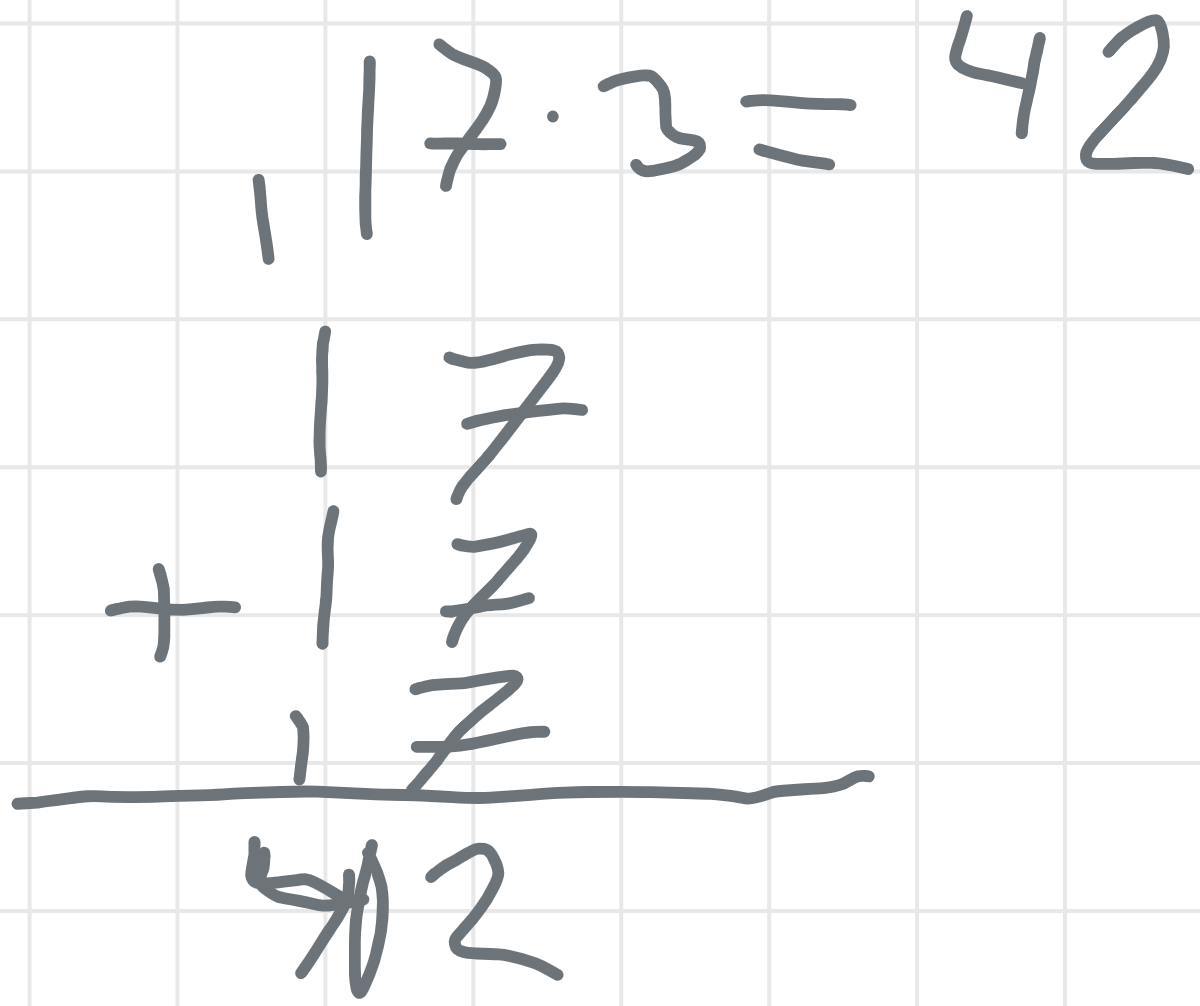 17·3=42
1
17
+ 17
17
42